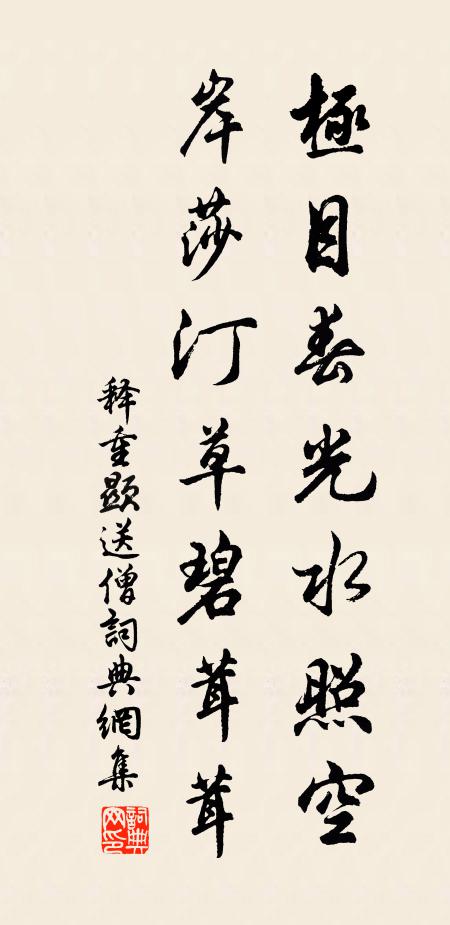 極目春光水照空
岸莎汀草碧茸茸
释重顯送僧詞典網集
詞典网印